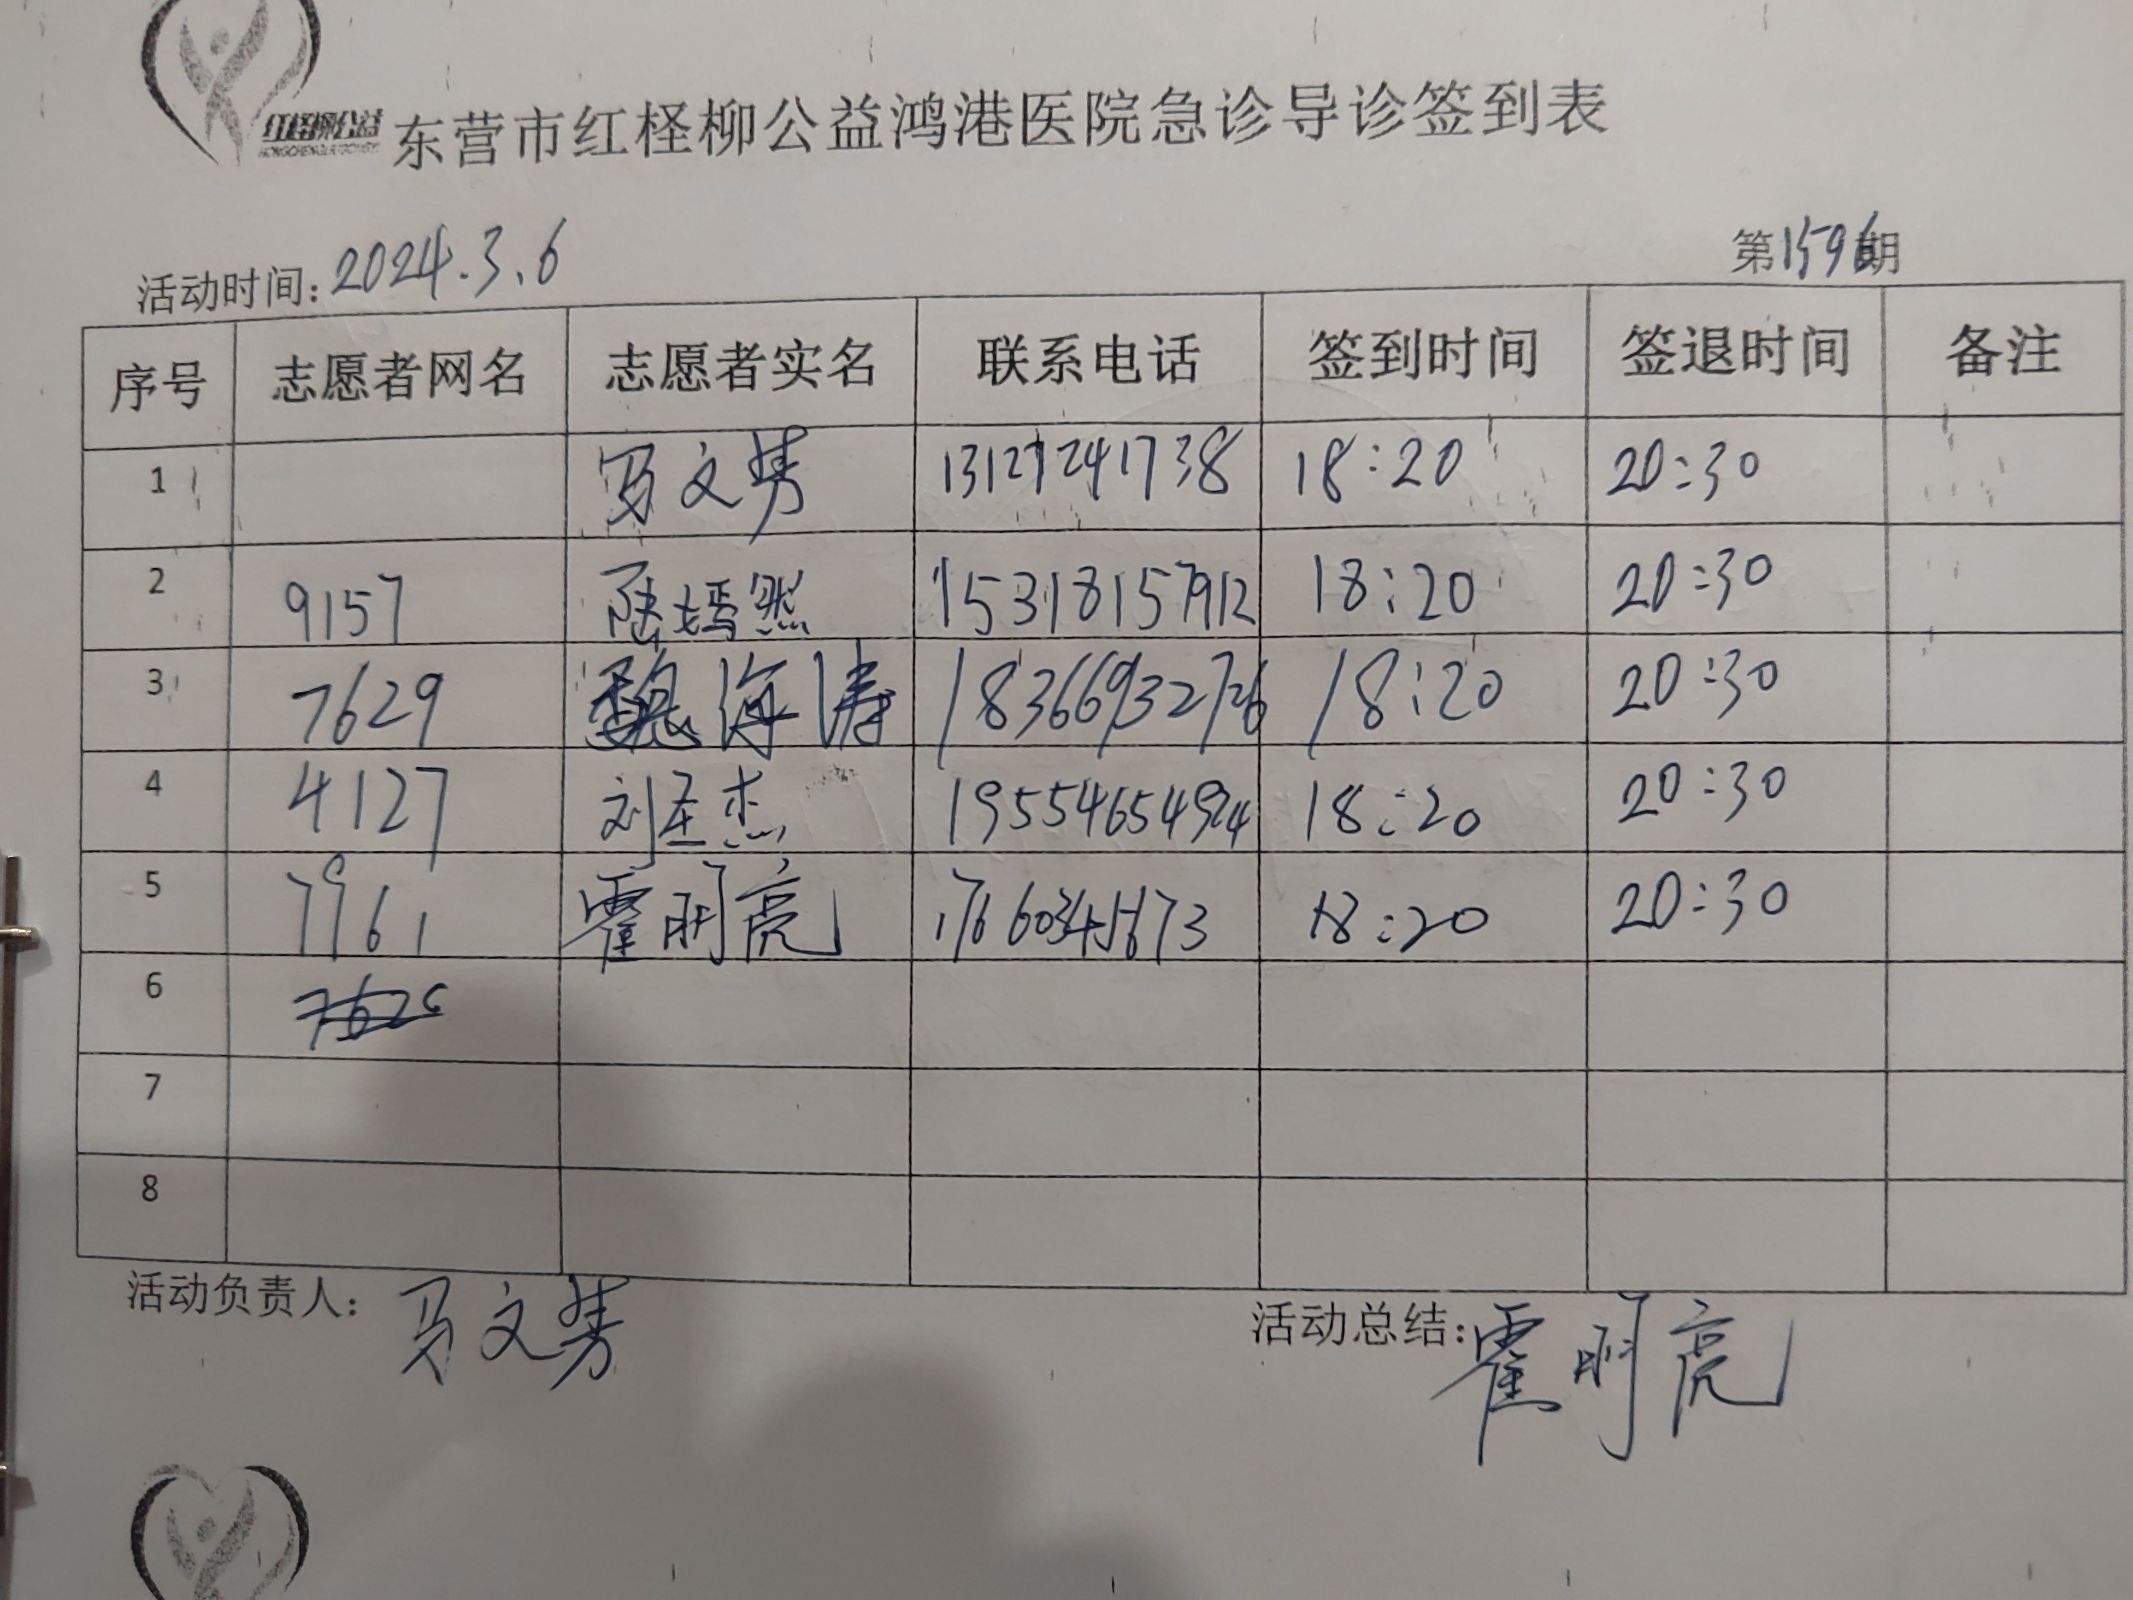 红柽柳公益
东营市红柽柳公益鸿港医院急诊导诊签到表
活动时间: 2024.3.6 第1596期
序号 志愿者网名 志愿者实名 联系电话 签到时间 签退时间 备注
1 马文隽 13127241738 18:20 20:30
2 9157 陆嫣然 15318157912 18:20 20:30
3 7629 魏海涛 18366932726 18:20 20:30
4 4127 刘圣杰 19554654924 18:20 20:30
5 7961 霍明亮 17660345673 18:20 20:30
6
7
8
活动负责人: 马文隽 活动总结: 霍明亮